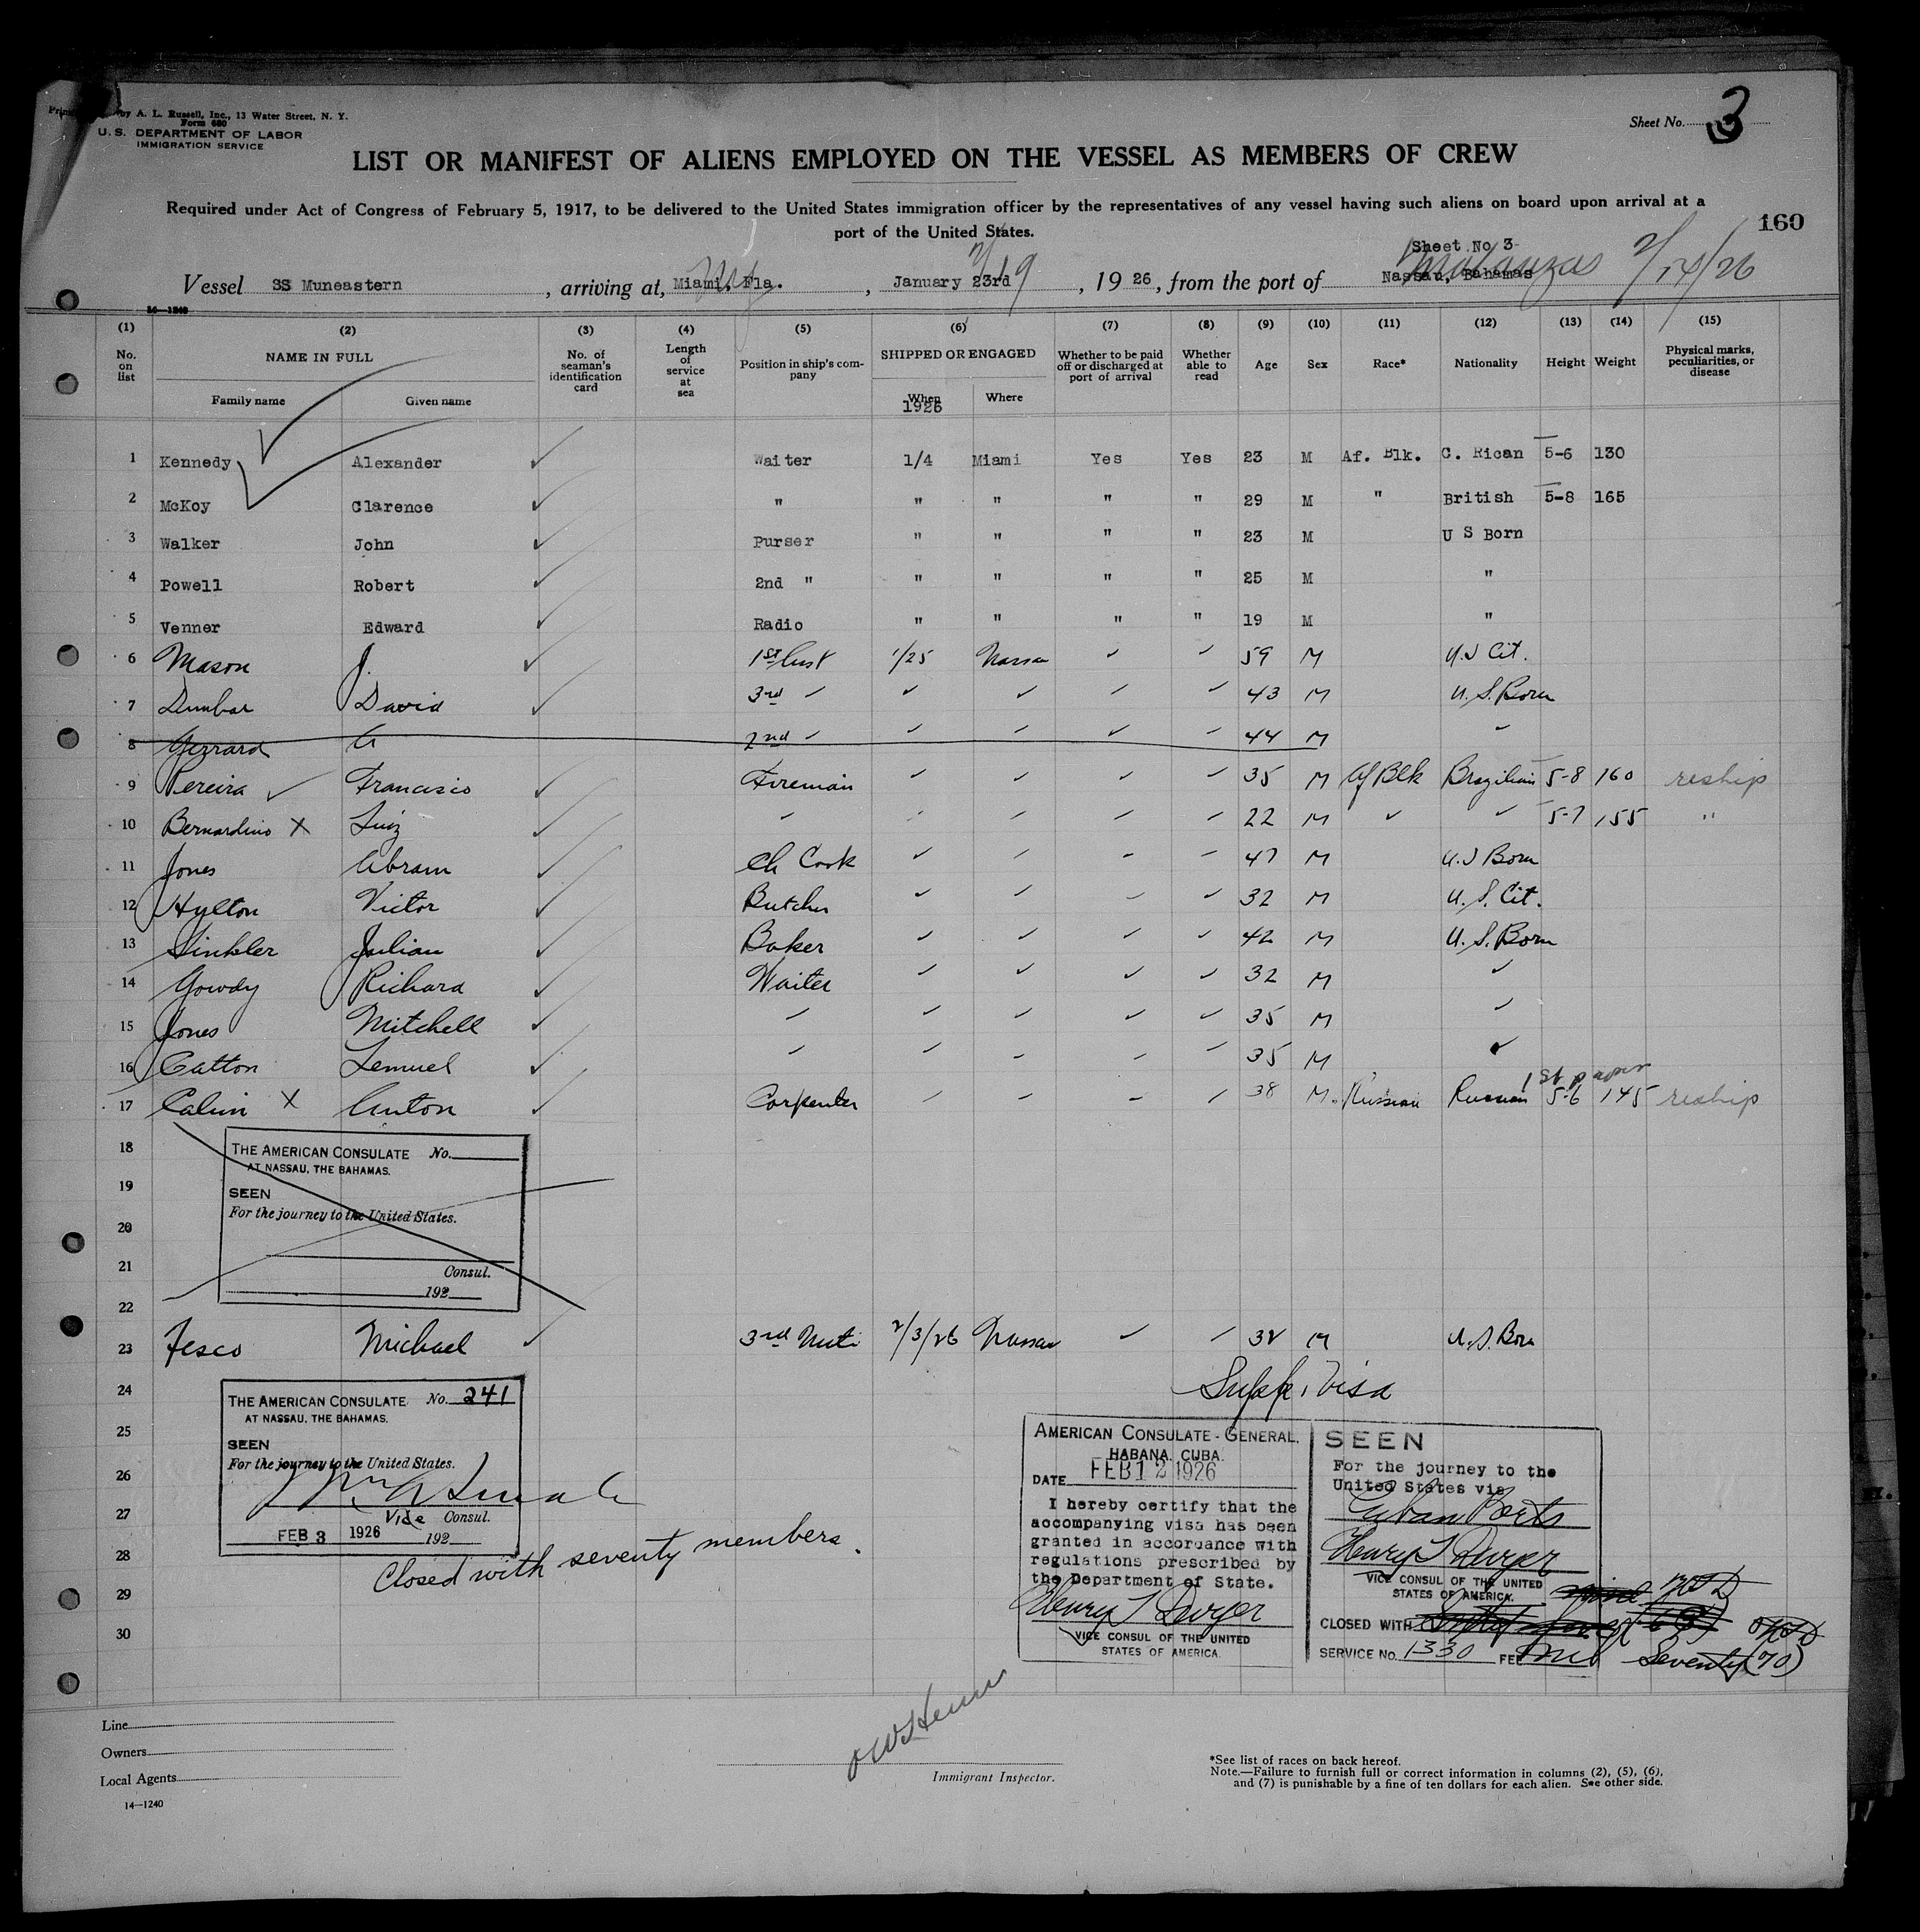 by A. L. Russell, Inc., 13 Water Street, N. Y.
Form 680
U. S. DEPARTMENT OF LABOR
IMMIGRATION SERVICE
Sheet No. 3
LIST OR MANIFEST OF ALIENS EMPLOYED ON THE VESSEL AS MEMBERS OF CREW
Required under Act of Congress of February 5, 1917, to be delivered to the United States immigration officer by the representatives of any vessel having such aliens on board upon arrival at a
port of the United States.
160
Sheet No 3
Vessel SS Muneastern, arriving at, Miami, Fla., January 23rd, 1926, from the port of Nassau, Bahamas
2/19 Matanzas 2/14/26
14—1240
(1) (2) (3) (4) (5) (6) (7) (8) (9) (10) (11) (12) (13) (14) (15)
No. on list
NAME IN FULL
Family name Given name
No. of seaman's identification card
Length of service at sea
Position in ship's company
SHIPPED OR ENGAGED
When Where
1926
Whether to be paid off or discharged at port of arrival
Whether able to read
Age Sex Race* Nationality Height Weight
Physical marks, peculiarities, or disease
1 Kennedy Alexander ✓ Waiter 1/4 Miami Yes Yes 23 M Af. Blk. C. Rican 5-6 130
2 McKoy Clarence ✓ " " " " " 29 M " British 5-8 165
3 Walker John ✓ Purser " " " " 23 M U S Born
4 Powell Robert ✓ 2nd " " " " " 25 M "
5 Venner Edward ✓ Radio " " " " 19 M "
6 Mason J. ✓ 1st 1/25 Nassau ✓ ✓ 59 M U.S Cit.
7 Dunbar David ✓ 3rd ✓ ✓ ✓ ✓ ✓ 43 M U.S. Born
8 Gerrard A 2nd ✓ ✓ ✓ ✓ ✓ 44 M ✓
9 Pereira ✓ Francisco ✓ Fireman ✓ ✓ ✓ ✓ 35 M Af Blk Brazilian 5-8 160 reship
10 Bernardino X Luiz ✓ ✓ ✓ ✓ ✓ ✓ 22 M ✓ ✓ 5-7 155 "
11 Jones Abram ✓ Ch Cook ✓ ✓ ✓ ✓ 47 M U.S Born
12 Hylton Victor ✓ Butcher ✓ ✓ ✓ ✓ 32 M U.S. Cit.
13 Sinkler Julian ✓ Baker ✓ ✓ ✓ ✓ 42 M U.S. Born
14 Gowdy Richard ✓ Waiter ✓ ✓ ✓ ✓ 32 M ✓
15 Jones Mitchell ✓ ✓ ✓ ✓ ✓ ✓ 35 M ✓
16 Catton Lemuel ✓ ✓ ✓ ✓ ✓ ✓ 35 M ✓
1st paper
17 Calnin X Anton ✓ Carpenter ✓ ✓ ✓ ✓ 38 M. Russian Russian 5-6 145 reship
18
THE AMERICAN CONSULATE No.
AT NASSAU, THE BAHAMAS.
19
SEEN
For the journey to the United States.
20
21
Consul.
192
22
23 Fesco Michael ✓ 3rd 2/3/26 Nassau ✓ ✓ 32 M U.S. Born
24
Supp. Visa
THE AMERICAN CONSULATE No. 241
AT NASSAU, THE BAHAMAS.
25
SEEN
For the journey to the United States.
26
27
Vice Consul.
FEB 3 1926 192
28
Closed with seventy members.
29
30
AMERICAN CONSULATE-GENERAL,
HABANA, CUBA.
DATE FEB 12 1926
I hereby certify that the
accompanying visa has been
granted in accordance with
regulations prescribed by
the Department of State.
Henry T Dwyer
VICE CONSUL OF THE UNITED
STATES OF AMERICA.
SEEN
For the journey to the
United States via
Cuban Ports
Henry T Dwyer
VICE CONSUL OF THE UNITED
STATES OF AMERICA.
CLOSED WITH
Seventy (70)
SERVICE No. 1330 FEE
Line
Owners
Local Agents
14—1240
Immigrant Inspector.
*See list of races on back hereof.
Note.—Failure to furnish full or correct information in columns (2), (5), (6),
and (7) is punishable by a fine of ten dollars for each alien. See other side.